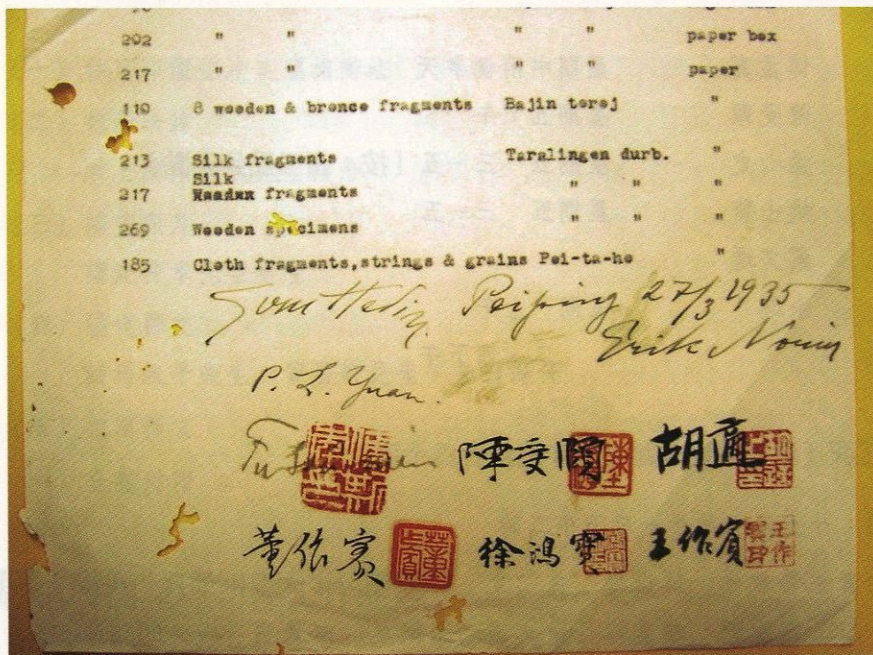 202 " " " " paper box
217 " " " " paper
110 8 wooden & bronce fragments Bajin torej "
213 Silk fragments Taralingen durb. "
Silk
217 fragments " " "
269 Wooden specimens " " "
185 Cloth fragments,strings & grains Pei-ta-ho "
Sven Hedin. Peiping 27/3 1935
Erik Norin
P. L. Yuan.
陳受頤 胡適
董作賓 徐鴻寶 王作賓